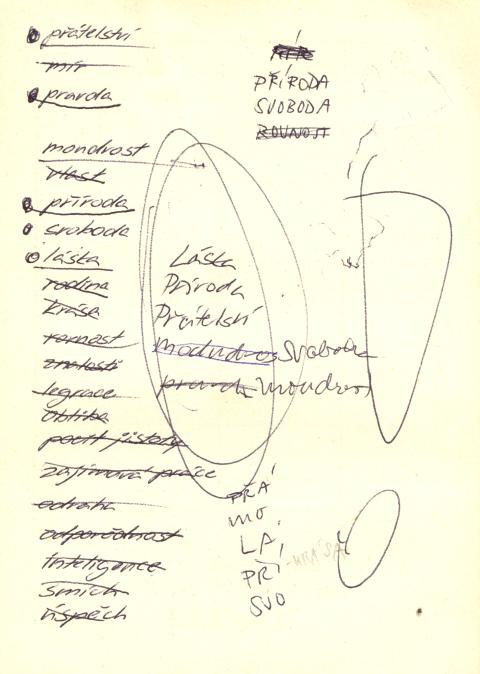 přátelství
mír
pravda
moudrost
vlast
příroda
svoboda
láska
rodina
krása
rovnost
znalosti
legrace
obliba
pocit jistoty
zajímavá práce
odvaha
odpovědnost
inteligence
smích
úspěch
PŘÍRODA
SVOBODA
ROVNOST
Láska
Příroda
Přátelství
Svoboda
pravda moudrost
PŘÁ
MO
LÁ
PŘÍ
SVO